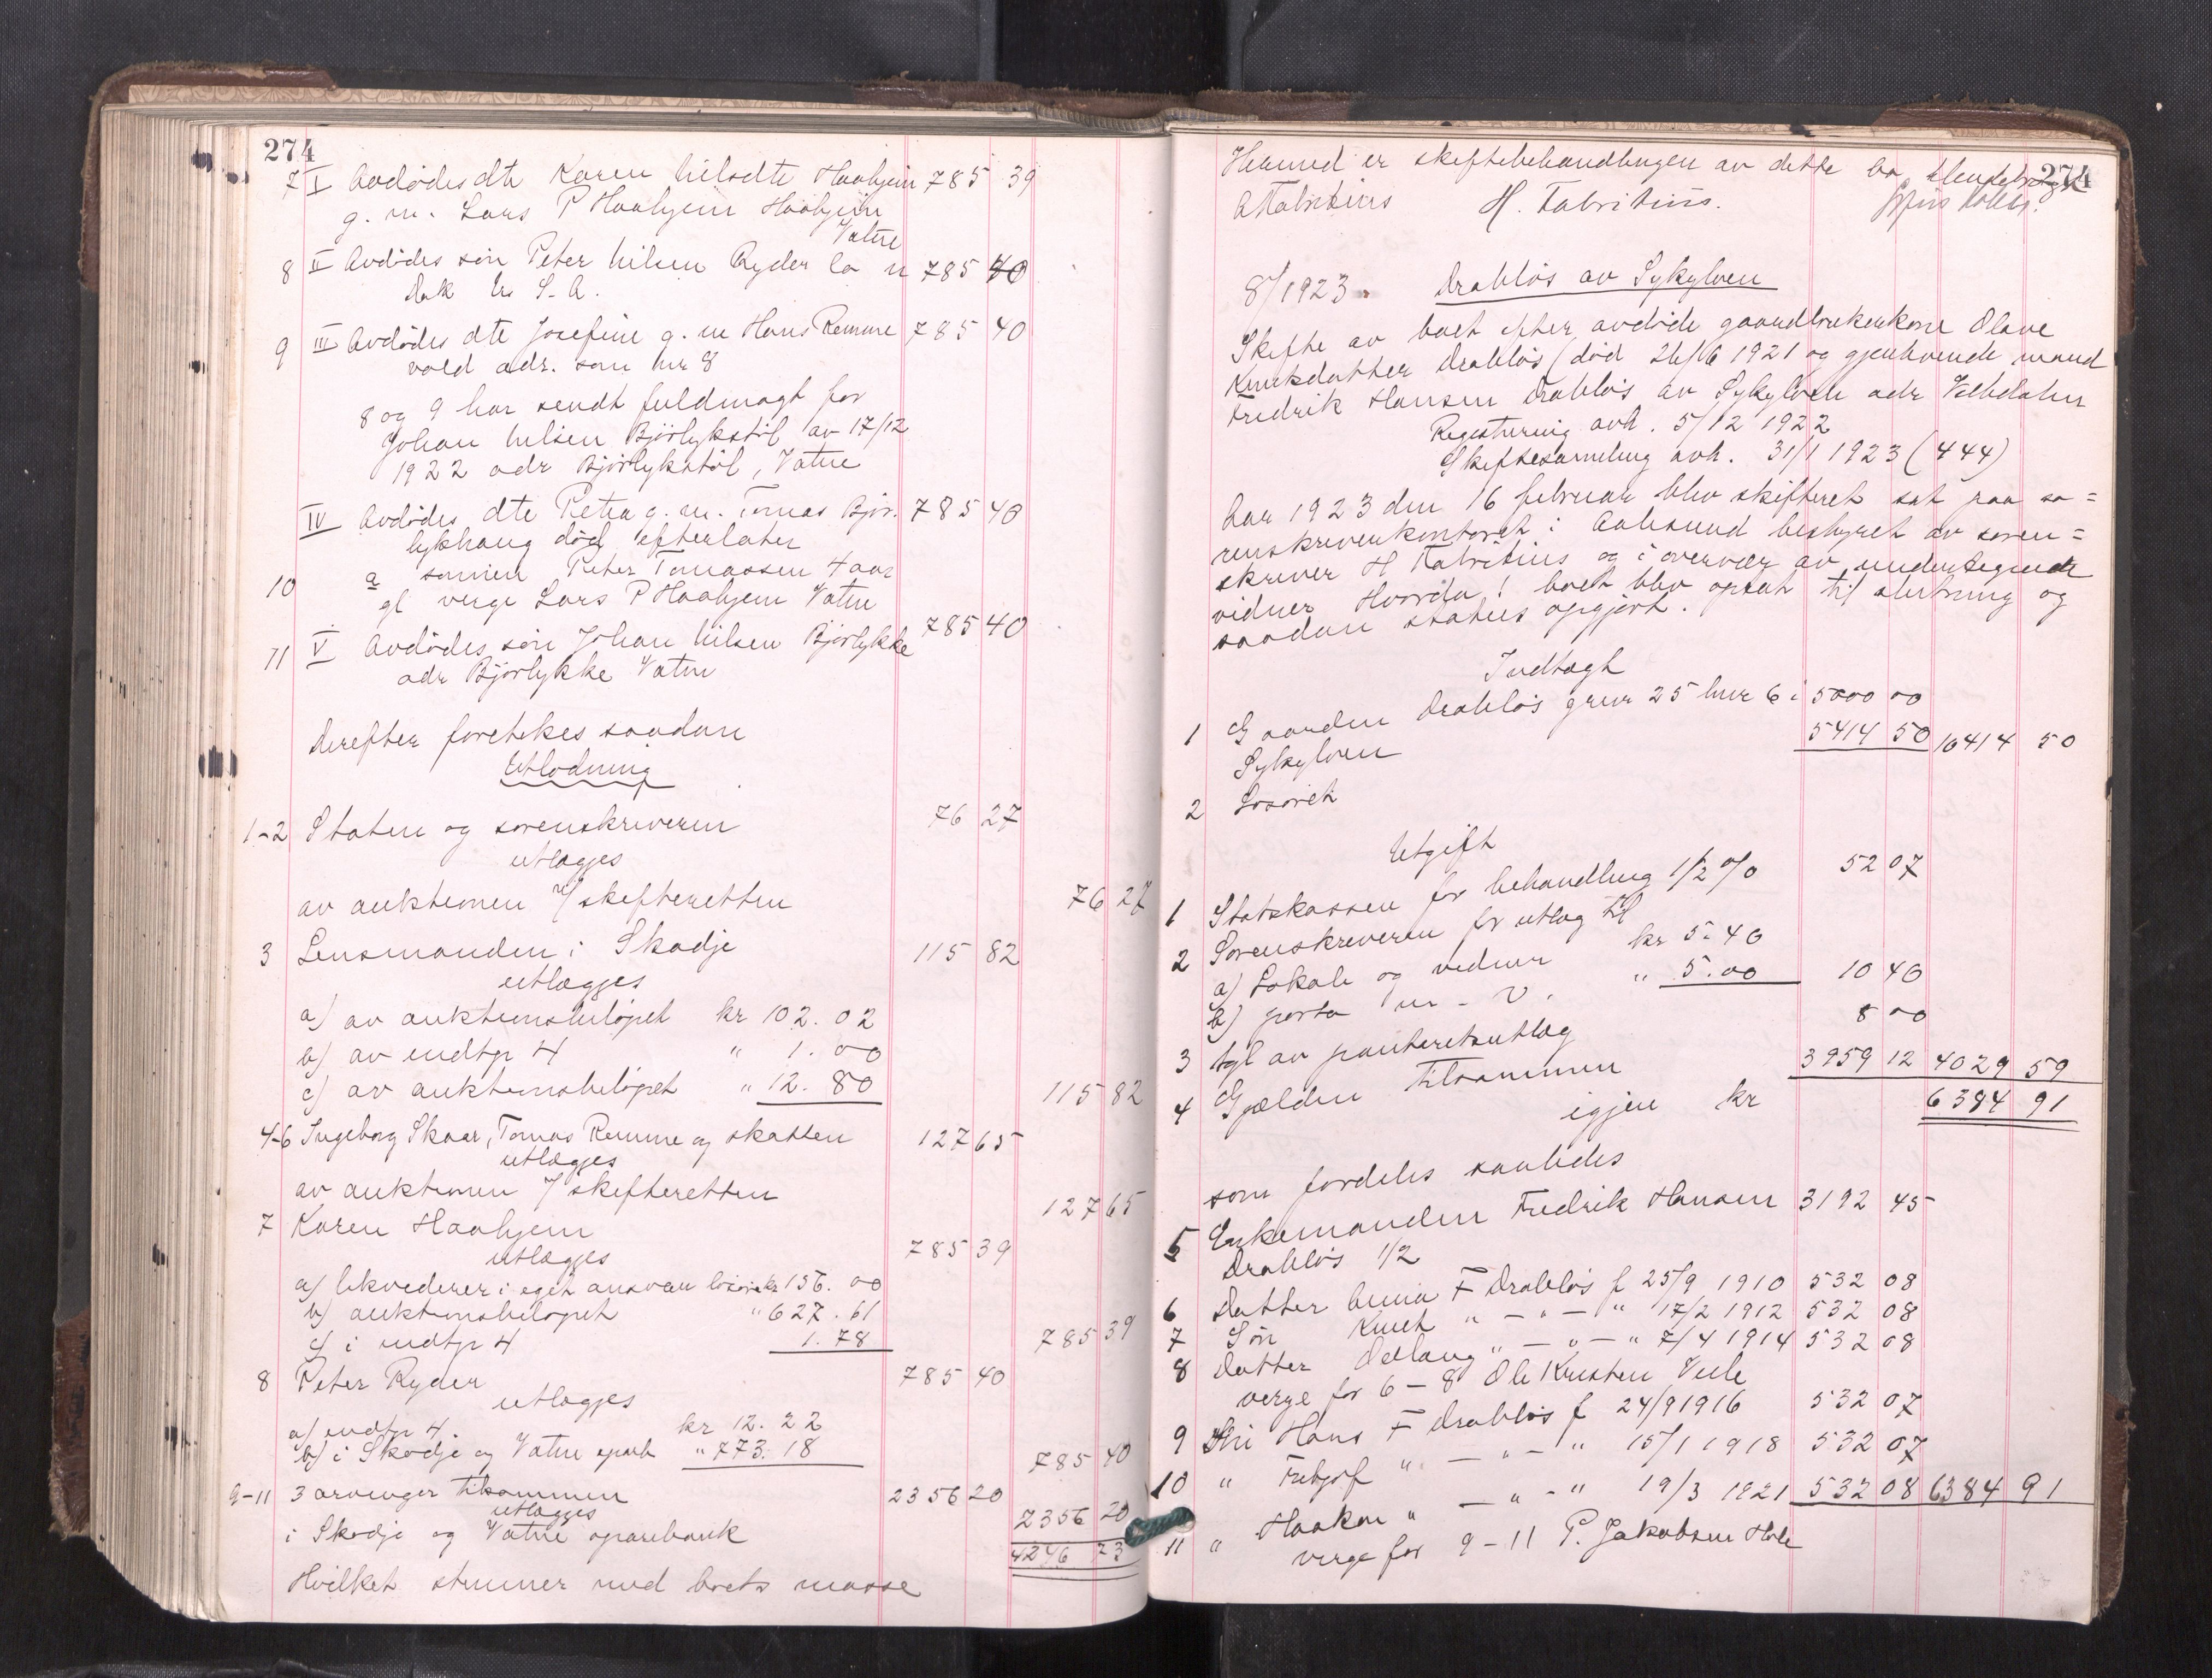 274
7 I Avdødes dtr Karen Nilsdtr Haahjem 785 39
g. m. Lars P Haahjem Haahjem
Vatne
8 II Avdødes søn Peter Nilsen Ryder 785 40
Dak U. S. A.
9 III Avdødes dtr Josefine g. m Hans Remme 785 40
vold adr. som nr 8
8 og 9 har sendt fuldmagt for
Johan Nilsen Bjørlykstøl av 17/12
1922 adr Bjørlykstøl, Vatne
IV Avdødes dtr Petra g. m. Tomas Bjør- 785 40
lykhaug død, efterlater
10 a sønnen Peter Tomassen 4 aar
gl verge Lars P Haahjem Vatne
11 V Avdødes søn Johan Nilsen Bjørlykke 785 40
adr Bjørlykke Vatne
Derefter foretokes saadan
Utlodning
1-2 Staten og sorenskriveren 76 27
utlægges
av auktionen v/ skifteretten 76 27
3 Lensmanden i Skodje 115 82
utlægges
a) av auktionsbeløpet kr 102.02
b) av indtgr 4 " 1.00
c) av auktionsbeløpet " 12.80 115 82
4-6 Ingeborg Skaar, Tomas Remme og skatten 127 65
utlægges
av auktionen v/ skifteretten 127 65
7 Karen Haahjem 785 39
utlægges
a) likviderer i eget ansvar løsøre kr 156.00
b) auktionsbeløpet " 627.61
c) i indtgr 4 1.78 785 39
8 Peter Ryder 785 40
utlægges
a) indtgr 4 kr 12.22
b) i Skodje og Vatne spareb " 773.18 785 40
9-11 3 arvinger tilsammen 2356 20
utlægges
i Skodje og Vatne sparebank 2356 20
4246 73
Hvilket stemmer med boets masse
274
Hermed er skiftebehandlingen av dette bo sluttet
A Fabritius H. Fabritius.
8/1923. Drabløs av Sykylven
Skifte av boet efter avdøde gaardbrukerkone Olave
Knutsdatter Drabløs (død 26/6 1921 og gjenlevende mand
Fredrik Hansen Drabløs av Sykylven adr Velledalen
Registrering avh. 5/12 1922
Skiftesamling avh. 31/1 1923 (444)
Aar 1923 den 16 februar blev skifteret sat paa so=
renskriverkontoret i Aalesund bestyret av soren=
skriver H Fabritius og i overvær av undertegnede
vidner Hvorda! boet blev optat til slutning og
saadan status opgjort.
Indtægt
1 Gaarden Drabløs gnr 25 bnr 6 i 5000 00
Sykylven
2 Løsøret 5414 50 10414 50
Utgift
1 Statskassen for behandling 1/2 % 52 07
2 Sorenskriveren for utlæg til
a) Lokale og vidner kr 5.40
b) porto m. v. " 5.00 10 40
3 tgl av panteretsutlæg 8 00
4 Gjælden tilsammen 3959 12 4029 59
igjen kr 6384 91
som fordeles saaledes
5 Enkemanden Fredrik Hansen 3192 45
Drabløs 1/2
6 Datter Anna F Drabløs f 25/9 1910 532 08
7 Søn Knut " — " — " 17/2 1912 532 08
8 Datter Oddlaug " — " — " 7/4 1914 532 08
verge for 6-8 Ole Kristen Velle
9 Søn Hans F Drabløs f 24/9 1916 532 07
10 " Fritjof " — " — " 15/1 1918 532 07
11 " Haakon " — " — " 19/3 1921 532 08 6384 91
verge for 9-11 P. Jakobsen Hole